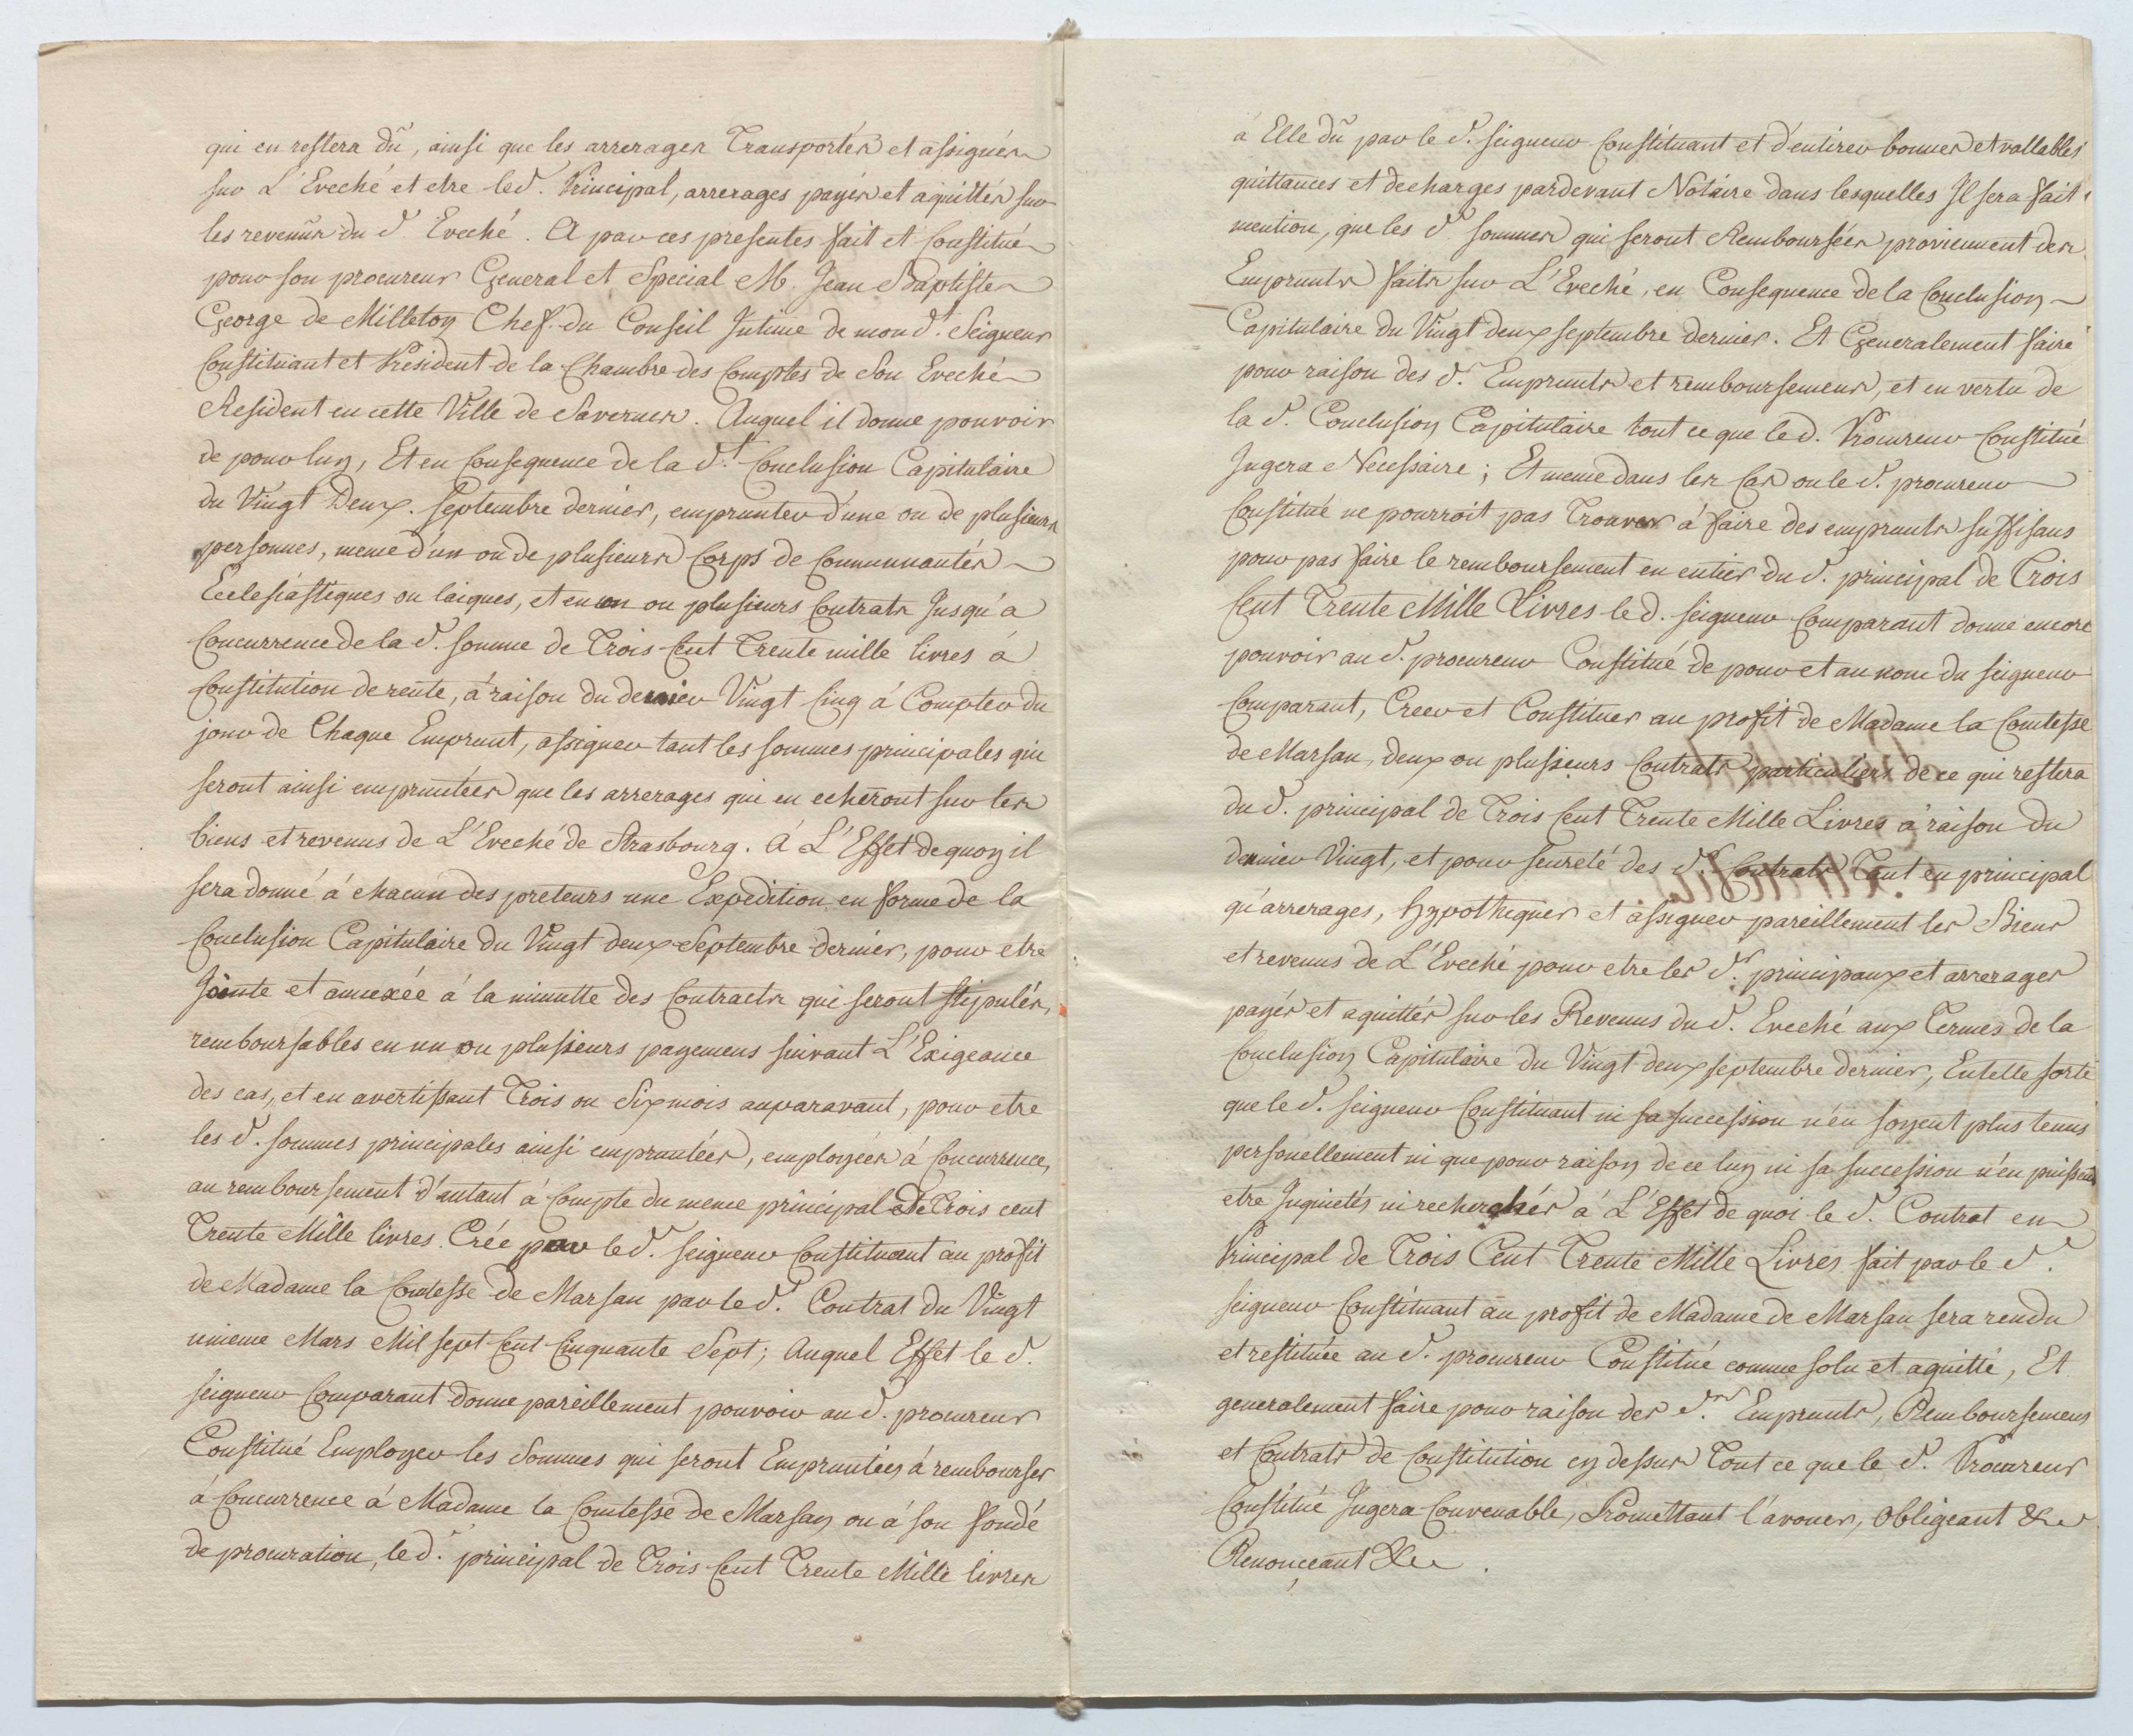 qui en restera dû, ainsi que les arrerages Transportés et assignés
sur L'Eveché et etre led. Principal, arrerages payés et aquittés sur
les revenus du d. Eveché. A par ces presentes fait et constitué
pour son procureur General et Special M. Jean Baptiste
George de Milleton Chef du Conseil Intime de mond. Seigneur
Constituant et Président de la Chambre des Comptes de Son Eveché
Resident en cette Ville de Savernes. Auquel il donne pouvoir
de pour luy, Et en Consequence de la d.t Conclusion Capitulaire
du Vingt Deux Septembre dernier, emprunter d'une ou de plusieurs
personnes, meme d'un ou de plusieurs Corps de Communautés
Eclesiastiques ou laiques, et en un ou plusieurs Contrats Jusqu'a
Concurrence de la d. somme de Trois Cent Trente mille livres à
Constitution de rente, à raison du denier Vingt Cinq à Compter du
jour de Chaque Emprunt, assigner tant les sommes principales qui
seront ainsi empruntées que les arrerages qui en echeront sur les
biens et revenus de L'Eveché de Strasbourg. A L'Effet de quoy il
sera donné à chacun des preteurs une Expedition en forme de la
Conclusion Capitulaire du Vingt deux Septembre dernier, pour etre
Jointe et annexée à la minutte des Contracts qui seront stipulés,
remboursables en un ou plusieurs payemens suivant L'Exigeance
des cas, et en avertissant Trois ou Six mois auparavant, pour etre
les d. sommes principales ainsi empruntées, employées à Concurrence,
au remboursement d'autant à Compte du meme principal de Trois cent
Trente Mille livres. Crée par le d. seigneur Constituant au profit
de Madame la Comtesse de Marsan par le d. Contrat du Vingt
unieme Mars Mil sept Cent Cinquante Sept; Auquel Effet le d.
seigneur Comparant donne pareillement pouvoir au d. procureur
Constitué Employer les Sommes qui seront Empruntées à rembourser
à Concurrence à Madame la Comtesse de Marsan ou à son fondé
de procuration, le d. principal de Trois Cent Trente Mille livres
à Elle dû par le d. seigneur Constituant et d'en tirer bonnes et vallables
quittances et decharges pardevant Notaire dans lesquelles Il sera fait
mention, que les d. sommes qui seront Remboursées proviennent des
Emprunts faits sur L'Eveché, en Consequence de la Conclusion
Capitulaire du Vingt deux septembre dernier. Et Generalement faire
pour raison des d. Emprunts et remboursemens, et en vertu de
la d. Conclusion Capitulaire tout ce que le d. Procureur Constitué
Jugera Necessaire; Et meme dans les Cas ou le d. procureur
Constitué ne pourroit pas Trouver à faire des emprunts suffisans
pour pas faire le remboursement en entier du d. principal de Trois
Cent Trente Mille Livres le d. seigneur Comparant donne encore
pouvoir au d. procureur Constitué de pour et au nom du seigneur
Comparant, Creer et Constituer au profit de Madame la Comtesse
de Marsan, deux ou plusieurs Contrats particuliers de ce qui restera
du d. principal de Trois Cent Trente Mille Livres à raison du
denier Vingt, et pour seureté des d. Contrats Tant en principal
qu'arrerages, hypothequer et assigner pareillement les Biens
et revenus de L'Eveché pour etre les d. principaux et arrerages
payés et aquittés sur les Revenus du d. Eveché aux Termes de la
Conclusion Capitulaire du Vingt deux septembre dernier, En telle sorte
que le d. seigneur Constituant ni sa succession n'en soyent plus tenus
personellement ni que pour raison de ce luy ni sa succession n'en puissent
etre Inquietés ni recherchés à L'Effet de quoi le d. Contrat en
Principal de Trois Cent Trente Mille Livres fait par le d.
seigneur Constituant au profit de Madame de Marsan sera rendu
et restituée au d. procureur Constitué comme solu et aquitté, Et
generalement faire pour raison des d. Emprunts, Remboursemens
et Contrats de Constitution cy dessus Tout ce que le d. Procureur
Constitué Jugera Convenable, Promettant l'avouer, Obligeant &c
Renonçeant &c.